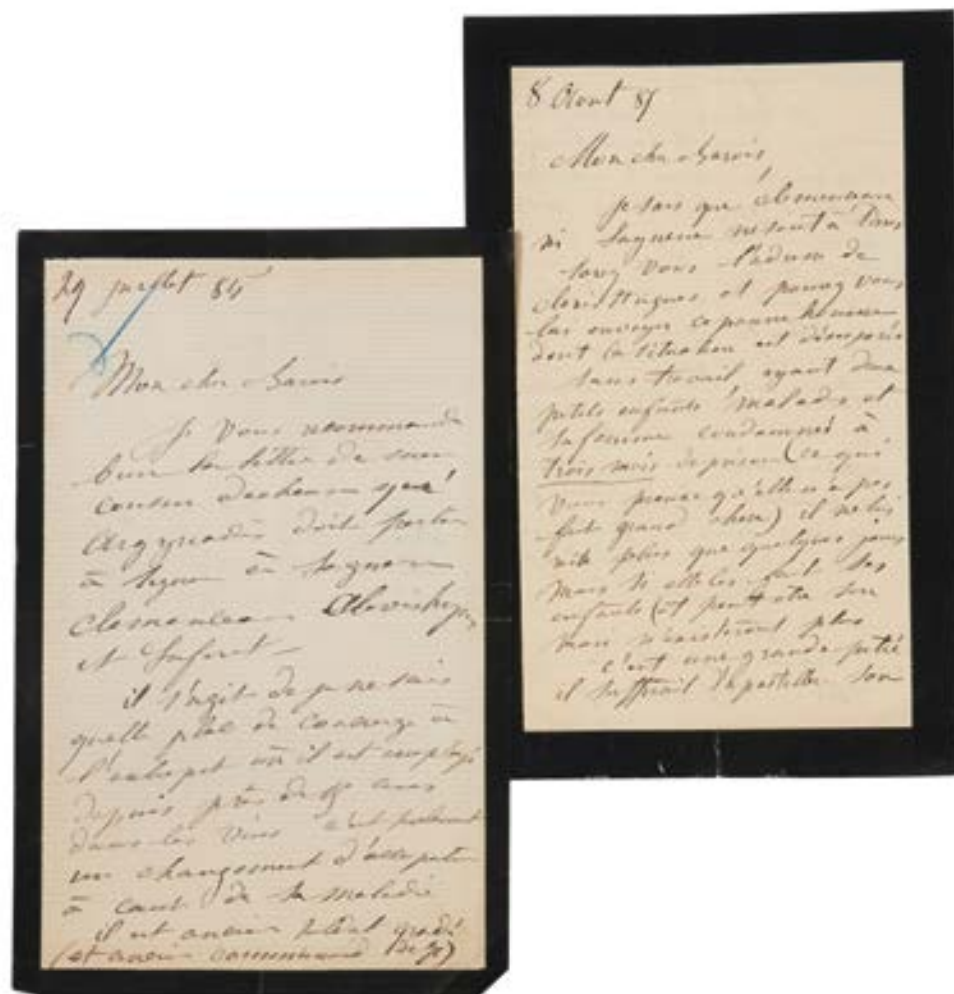 29 juillet 85
Mon cher
Je vous recommande
bien la lettre de mon
cousin que
Argyriadès doit porter
à signer à Laguerre
Clemenceau
et
il s'agit de je ne sais
quelle place de
l'entrepôt où il est employé
depuis près de ans
dans les vins c'est
un changement d'occupation
à cause de sa maladie
il est ancien soldat gradé
(et ancien

8 Aout 85
Mon cher
Je sais que Clemenceau
ni Laguerre ne sont à
vous l'adresse de
Clovis Hugues et pouvez vous
lui envoyer ce pauvre homme
dont la situation est désespérée
sans travail ayant deux
petits enfants malades et
sa femme condamnée à
trois mois de prison (ce qui
vous prouve qu'elle n'a pas
fait grand chose) il ne lui
reste plus que quelques jours
mais si elle les fait ses
enfants (et peut être son
mari n'existeront plus
c'est une grande pitié
il suffirait d'apostiller son